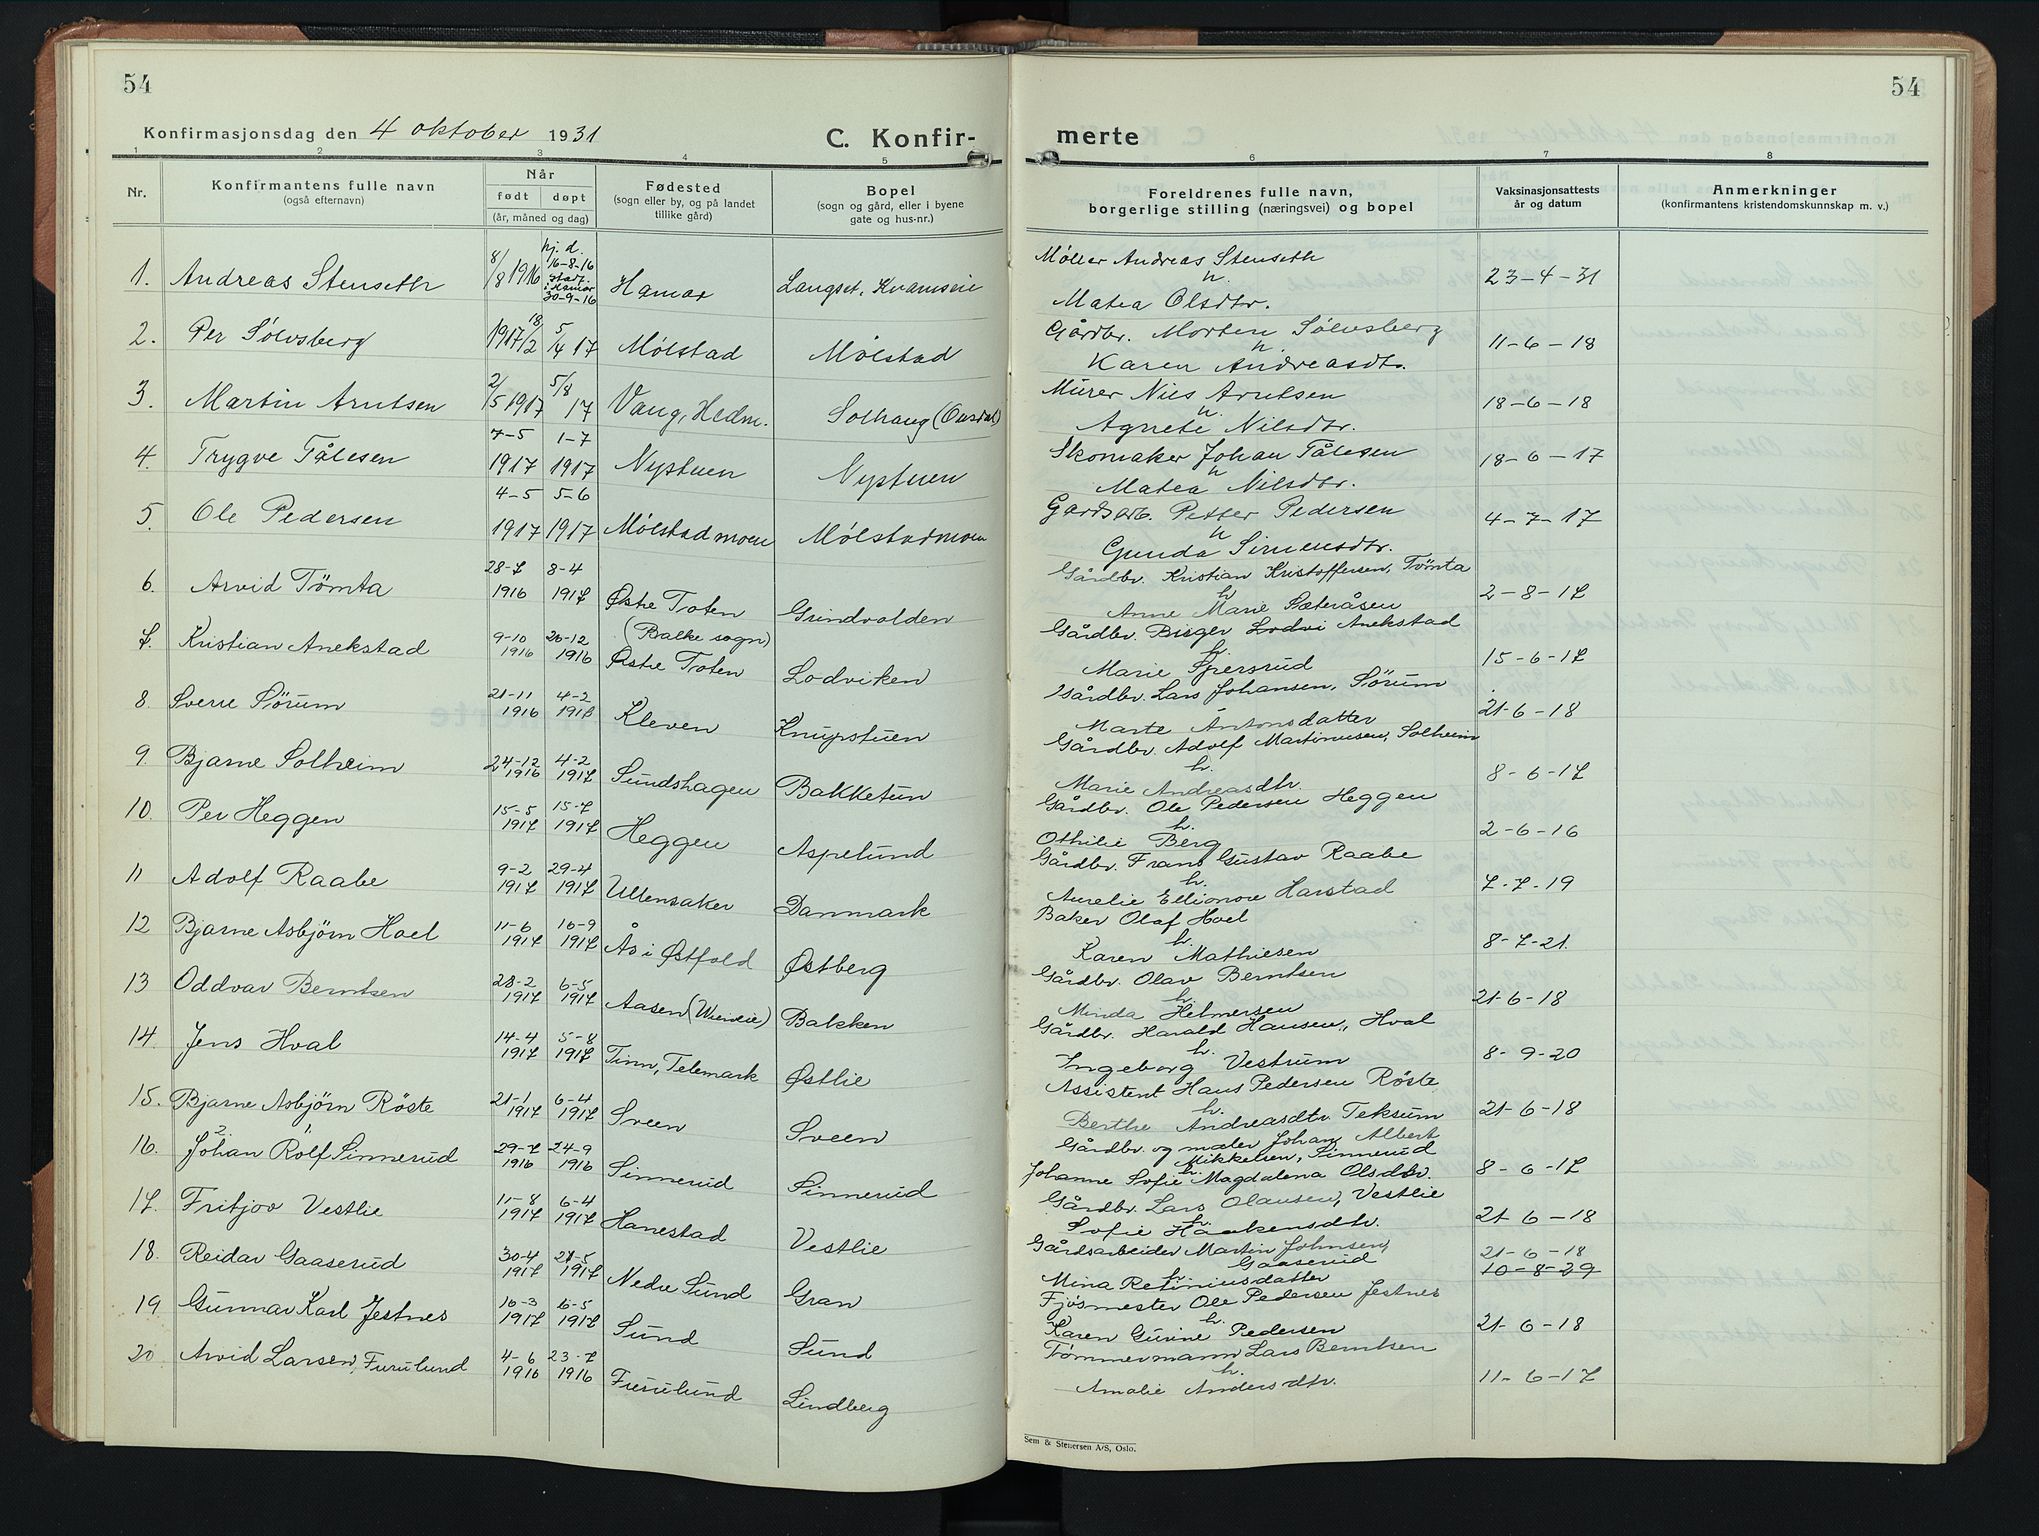 54
54
Konfirmasjonsdag den 4 oktober 1931
C. Konfir-
merte
1 2 3 4 5 6 7 8
Nr.
Konfirmantens fulle navn
(også efternavn)
Når
født døpt
(år, måned og dag)
Fødested
(sogn eller by, og på landet
tillike gård)
Bopel
(sogn og gård, eller i byene
gate og hus-nr.)
Foreldrenes fulle navn,
borgerlige stilling (næringsvei) og bopel
Vaksinasjonsattests
år og datum
Anmerkninger
(konfirmantens kristendomskunnskap m. v.)
1. Andreas Stenseth 8/8 1916 hj. d. 16-8-16 stadf. i Hamar 30-9-16 Hamar Langset, Kvamseie
Møller Andreas Stenseth
h
Matea Olsdtr. 23-4-31
2. Per Sølvsberg 1917 18/2 5/4 17 Mølstad Mølstad
Gårdbr. Morten Sølvsberg
h
Karen Andreasdtr. 11-6-18
3. Martin Arntsen 2/5 1917 5/8 17 Vang, Hedm. Solhaug
Murer Nils Arntsen
h.
Agnete Nilsdtr. 18-6-18
4. Trygve Tålesen 7-5 1917 1-7 1917 Nystuen Nystuen
Skomaker Johan Tålesen
h
Matea Nilsdtr. 18-6-17
5. Ole Pedersen 4-5 1917 5-6 1917 Mølstadmoen Mølstadmoen
Gardsarb. Petter Pedersen
h
Gunda Simensdtr. 4-7-17
6. Arvid Tømta 28-7 1916 8-4 1917 Østre Toten (Balke sogn) Grindvolden
Gårdbr. Kristian Kristoffersen, Tømta
h
Anne Marie Sæteråsen 2-8-17
7. Kristian Anekstad 9-10 1916 26-12 1916 Østre Toten Lodviken
Gårdbr. Birger Lodvi Anekstad
h.
Marie Sperrud 15-6-17
8. Sverre Sørum 21-11 1916 4-2 1918 Kleven Knurrstuen
Gårdbr. Lars Johansen, Sørum
Marte Antonsdatter 21-6-18
9. Bjarne Solheim 24-12 1916 4-2 1917 Sundshagen Bakketun
Gårdbr. Adolf Martinusen, Solheim
h.
Marie Andreasdtr. 8-6-17
10. Per Heggen 15-5 1917 15-7 1917 Heggen Aspelund
Gårdbr. Ole Pedersen Heggen
h.
Othilie Berg 2-6-16
11 Adolf Raabe 9-2 1917 29-4 1917 Ullensaker Danmark
Gårdbr. Frans Gustav Raabe
h.
Aurelie Ellionore Harstad 7-7-19
12 Bjarne Asbjørn Hoel 11-6 1917 16-9 1917 Ås i Østfold Østberg
Baker Olaf Hoel
h.
Karen Mathiesen 8-7-21.
13 Oddvar Berntsen 28-2 1917 6-5 1917 Aasen Bakken
Gårdbr. Olav Berntsen
h.
Minda Helmersen 21-6-18
14. Jens Hval 14-4 1917 5-8 1917 Tinn, Telemark Østlie
Gårdbr. Harald Hansen, Hval
h.
Ingeborg Vestrum 8-9-20
15. Bjarne Asbjørn Røste 21-1 1917 6-4 1917 Sveen Sveen
Assistent Hans Pedersen Røste
h.
Berthe Andreasdtr. Teksum 21-6-18
16. Johan Rolf Sinnerud 29-7 1916 24-9 1916 Sinnerud Sinnerud
Gårdbr. og maler Johan Albert
Mikkelsen, Sinnerud
h.
Johanne Sofie Magdalena Olsdtr. 8-6-17
17. Fritjov Vestlie 11-8 1917 6-4 1917 Hanestad Vestlie
Gårdbr. Lars Olausen, Vestlie
h.
Sofie Haakensdtr. 21-6-18
18. Reidar Gaaserud 30-4 1917 28-5 1917 Nedre Sund Gran
Gårdsarbeider Martin Johnsen,
Gaaserud
h.
Mina Retiniusdatter 21-6-18
10-8-29
19 Gunnar Karl Jestnes 16-3 1917 6-5 1917 Sund Sund
Fjøsmester Ole Pedersen Jestnes
h.
Karen Gurine Pedersen 21-6-18
20 Arvid Larsen, Furulund 4-6 1916 23-7 1916 Furulund Lindberg
Tømmermann Lars Berntsen
h.
Amalie Andersdtr. 11-6-17
Sem & Stenersen A/S, Oslo.